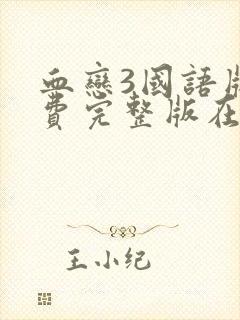 血戀3國語版
費完整版在
王小纪